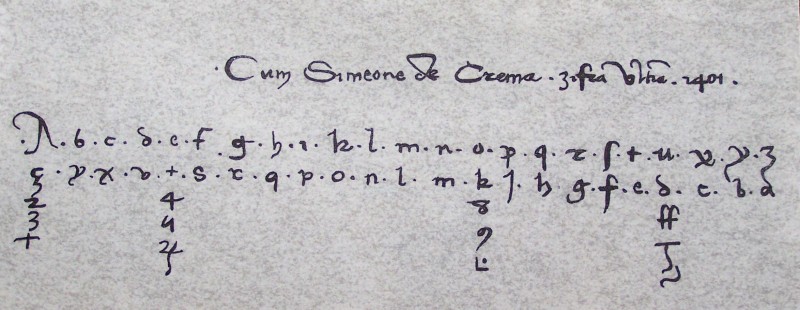 · Cum Simeone de Crema · 1401 ·
· A · b · c · d · e · f · g · h · i · k · l · m · n · o · p · q · r · s · t · u · x · y · z
z · y · x · v · t · s · r · q · p · o · n · l · m · k · j · h · g · f · e · d · c · b · a
2 4 8 ff
3 4
+